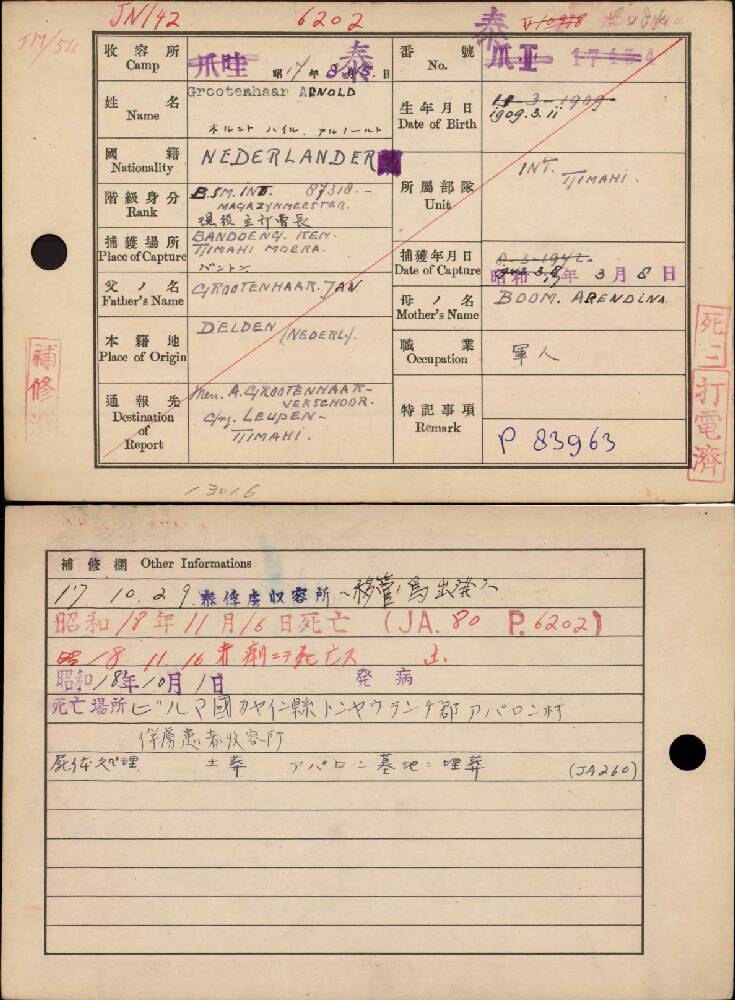 JN/142 6202 泰
J17/54
収容所 Camp 爪哇 泰 昭17年8月15日
番號 No. 爪II 17434
姓名 Name Grootenhaar ARNOLD
ホルント ハイル、アルノールト
生年月日 Date of Birth 11-3-1909
1909.3.11
國籍 Nationality NEDERLANDER
所屬部隊 Unit INT. TJIMAHI.
階級身分 Rank B.SM.INT. 87318.-
MAGAZYNMEESTER.
現役主計曹長
捕獲場所 Place of Capture BANDOENG. KEN.
TJIMAHI MOERA.
バンドン
捕獲年月日 Date of Capture 8-3-1942.
1942.3.8
昭和17年3月8日
父ノ名 Father's Name GROOTENHAAR. JAN
母ノ名 Mother's Name BOOM. ARENDINA
本籍地 Place of Origin DELDEN (NEDERL.).
職業 Occupation 軍人
通報先 Destination of Report Mevr. A. GROOTENHAAR-
VERSCHOOR.
C/ng. LEUPEN-
TJIMAHI.
特記事項 Remark P 83963
補修濟
死亡打電濟
13016
補修欄 Other Informations
17 10.29. 泰俘虜収容所ヘ移管ノ為出発ス
昭和18年11月16日死亡 (JA. 80 P. 6202)
昭18.11.16 赤痢ニテ死亡ス
昭和18年10月1日 発病
死亡場所 ビルマ國カヤイン縣トンヤウランケ郡アパロン村
俘虜患者収容所
屍体処理 土葬 アパロン墓地ニ埋葬 (JA260)